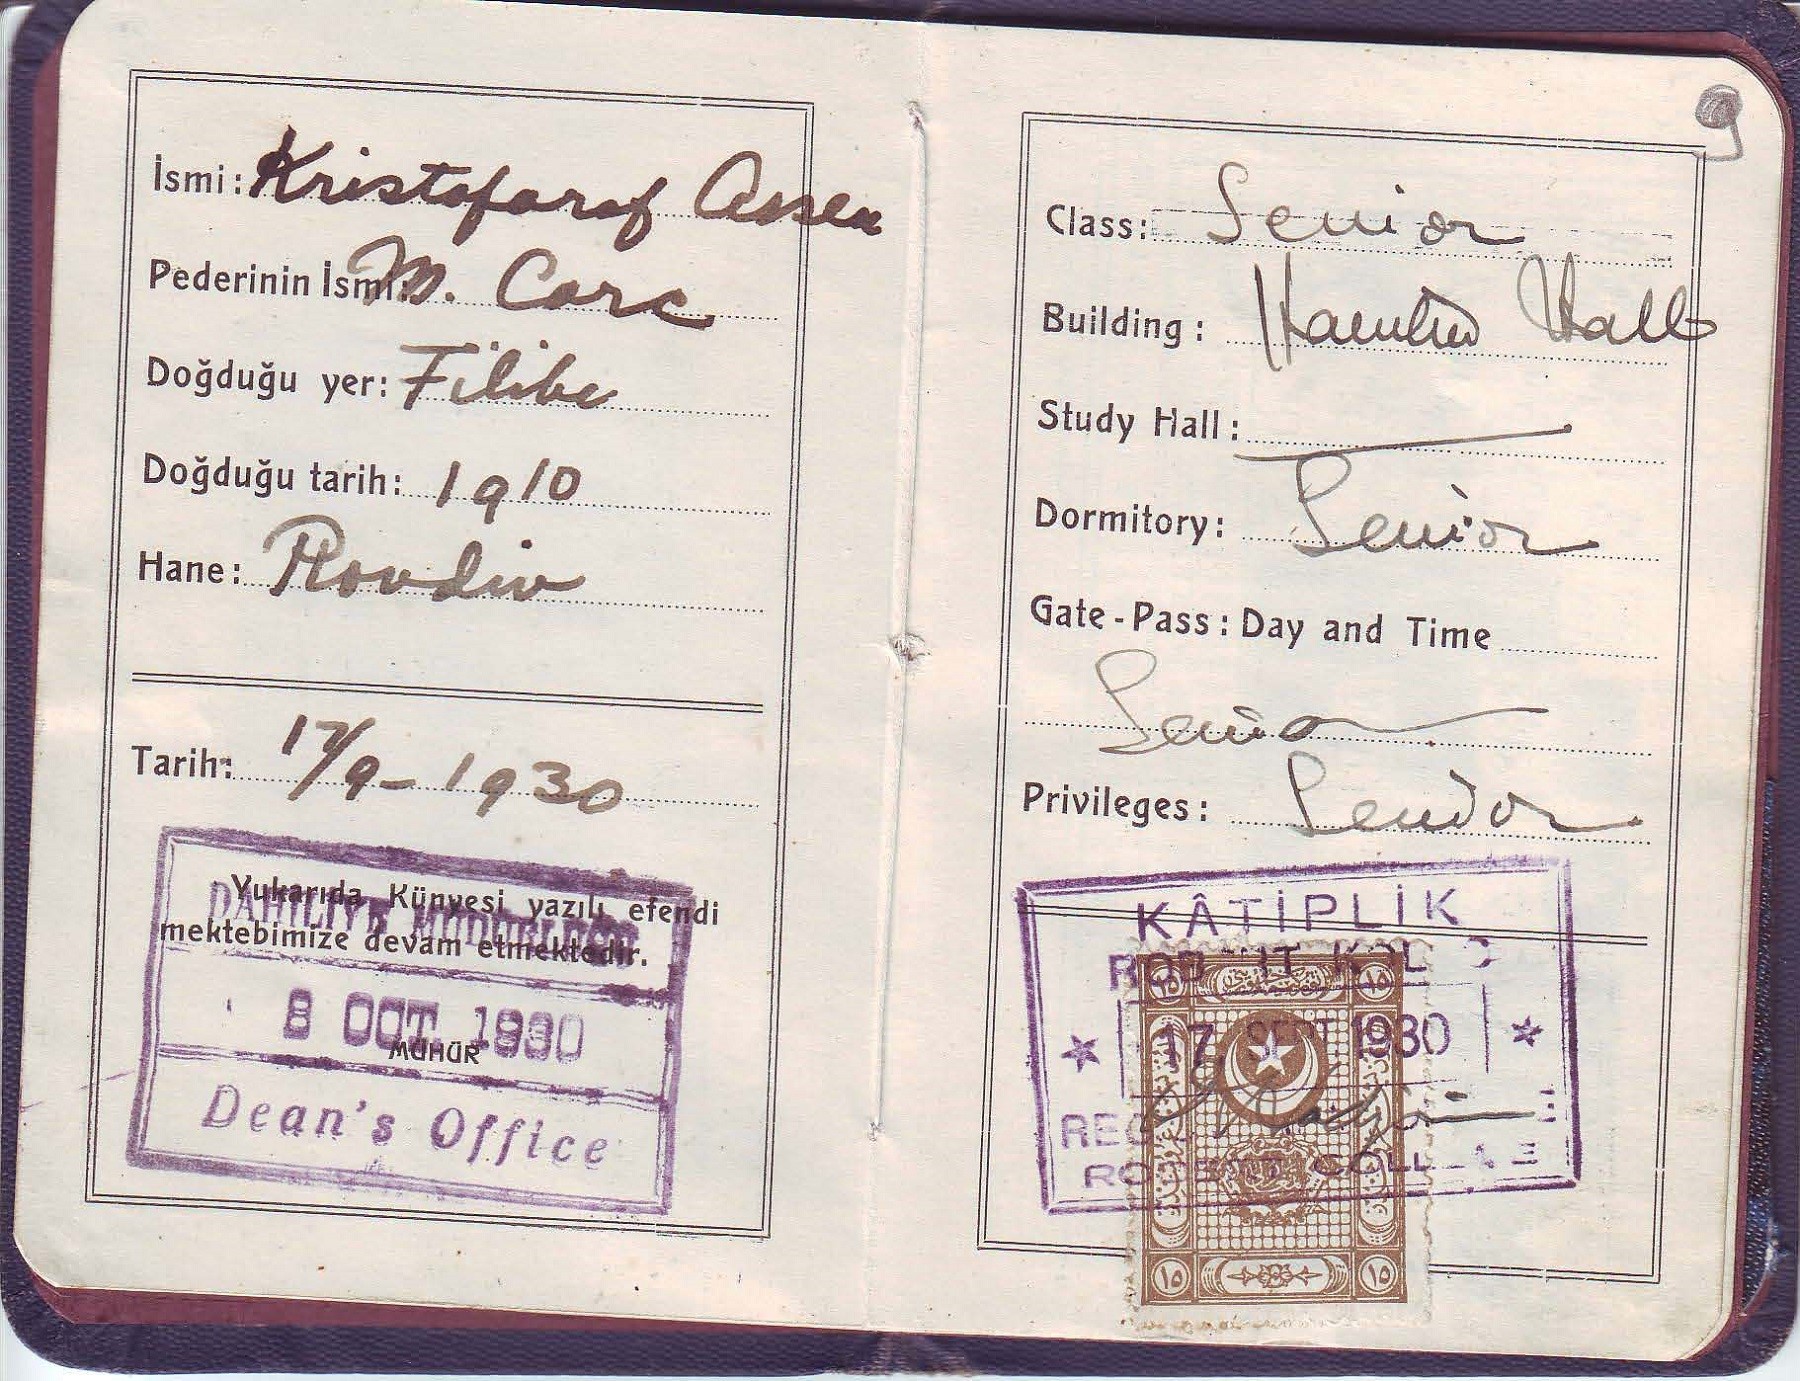 İsmi: Kristofarof Assen
Pederinin İsmi: M. Carc
Doğduğu yer: Filibe
Doğduğu tarih: 1910
Hane: Plovdiv
Tarih: 17/9-1930
Yukarıda Künyesi yazılı efendi
mektebimize devam etmektedir.
MÜHÜR
DAHİLİYE
8 OCT. 1930
Dean's Office
Class: Senior
Building: Hamlin Hall
Study Hall:
Dormitory: Senior
Gate-Pass: Day and Time
Senior
Privileges: Senior
KÂTİPLİK
17 SEPT 1930
١٥ ١٥
١٥ ١٥